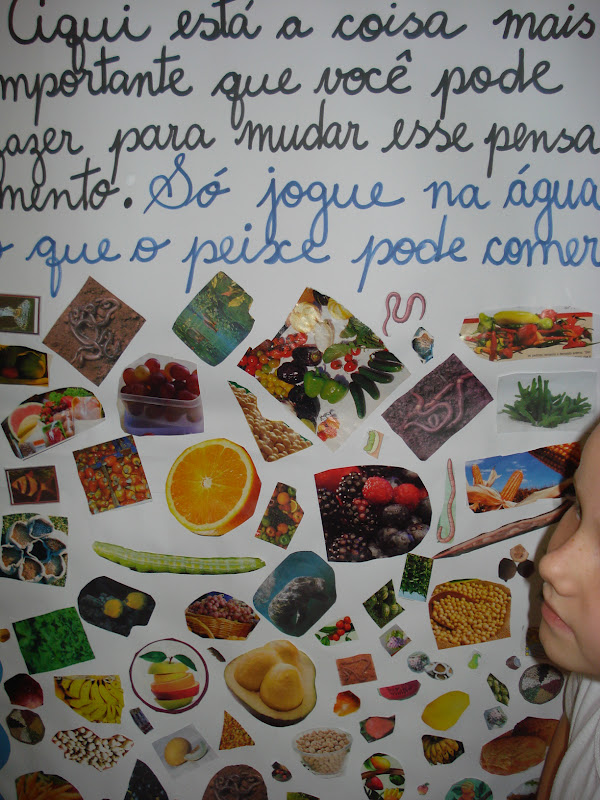 Aqui está a coisa mais
importante que você pode
fazer para mudar esse pensa
mento. Só jogue na água
o que o peixe pode comer